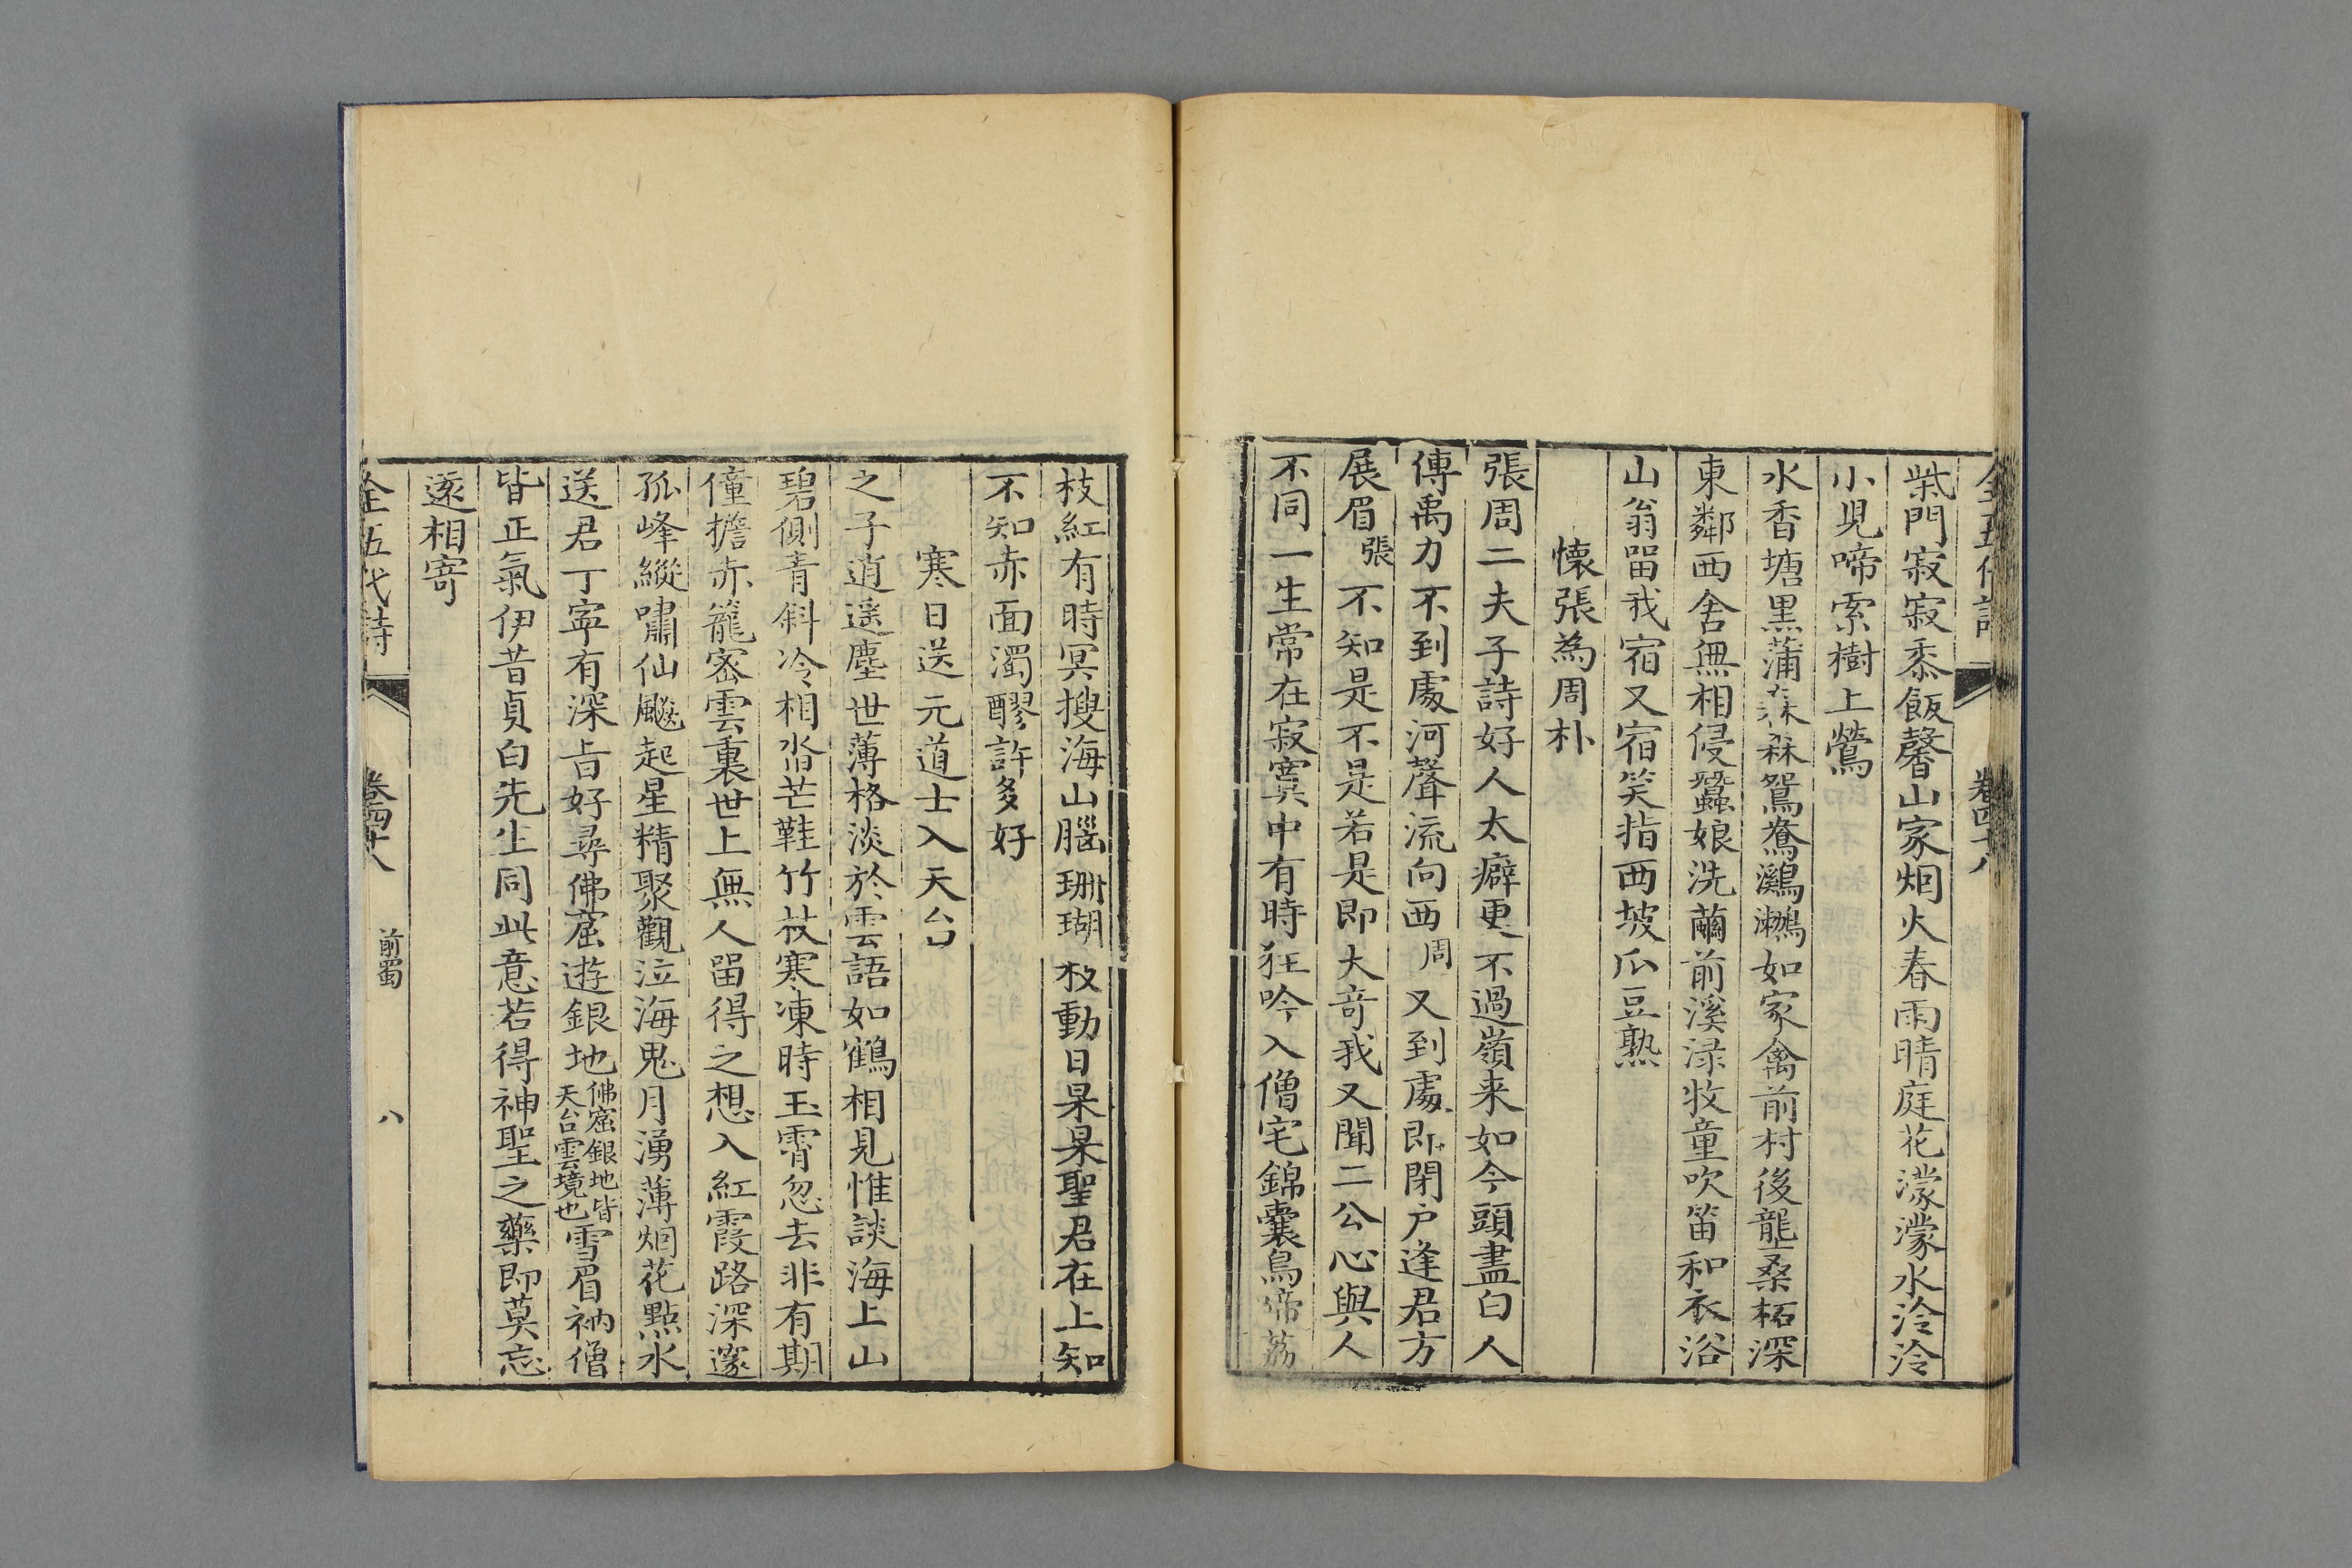 全五代詩 卷四十八
柴門寂寂黍飯馨山家烟火春雨晴庭花濛濛水泠泠
小兒啼索樹上鶯
水香塘黑蒲森森鴛鴦鸂鶒如家禽前村後壟桑柘深
東鄰西舍無相侵蠶娘洗繭前溪渌牧童吹笛和衣浴
山翁畱我宿又宿笑指西坡瓜豆熟
懷張為周朴
張周二夫子詩好人太癖更不過嶺来如今頭盡白人
傳禹力不到處河聲流向西周又到處即閉户逢君方
展眉張不知是不是若是即大竒我又聞二公心與人
不同一生常在寂寞中有時狂吟入僧宅錦囊鳥啼荔
枝紅有時冥搜海山腦珊瑚枝動日杲杲聖君在上知
不知赤面濁醪許多好
寒日送元道士入天台
之子逍遥塵世薄格淡於雲語如鶴相見惟談海上山
碧側青斜冷相沓芒鞋竹杖寒凍時玉霄忽去非有期
僮擔赤籠密雲裏世上無人畱得之想入紅霞路深邃
孤峰縱嘯仙飈起星精聚觀泣海鬼月湧薄烟花點水
送君丁寧有深旨好尋佛窟遊銀地佛窟銀地皆天台雲境也雪眉衲僧
皆正氣伊昔貞白先生同此意若得神聖之藥即莫忘
遠相寄
全五代詩 卷四十八 前蜀 八